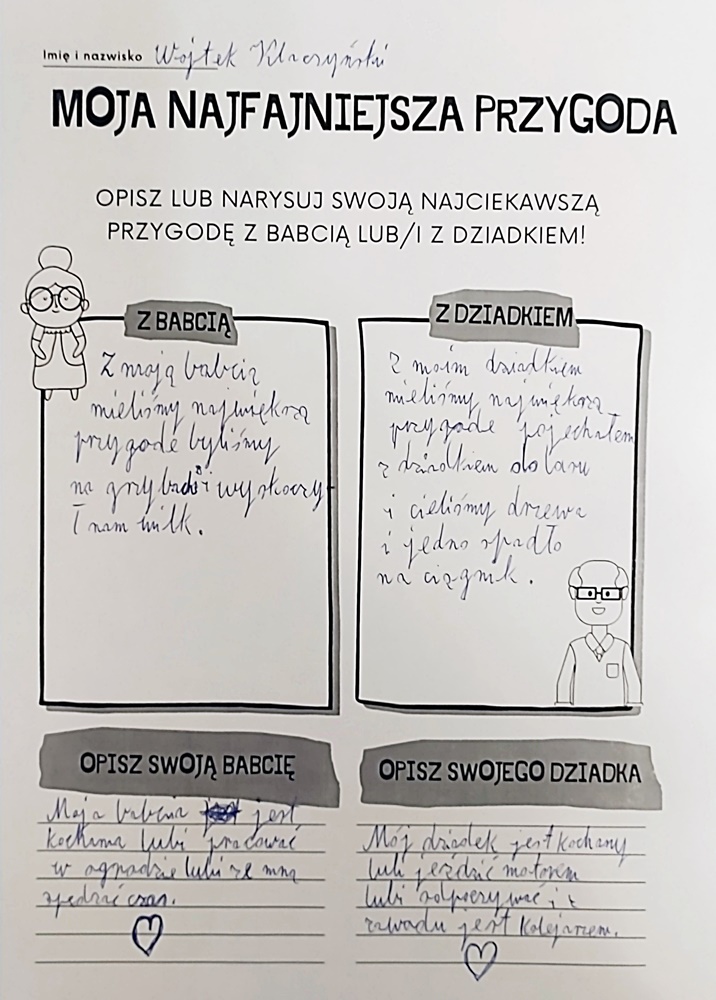 Imię i nazwisko Wojtek
MOJA NAJFAJNIEJSZA PRZYGODA
OPISZ LUB NARYSUJ SWOJĄ NAJCIEKAWSZĄ
PRZYGODĘ Z BABCIĄ LUB/I Z DZIADKIEM!
Z BABCIĄ
Z moją babcią
mieliśmy największą
przygode byliśmy
na grzybach i wyskoczy
ł nam wilk.
Z DZIADKIEM
Z moim dziadkiem
mieliśmy największą
przygode pojechałem
z dziadkiem do lasu
i cieliśmy drzewa
i jedno spadło
na ciągnik.
OPISZ SWOJĄ BABCIĘ
Moja babcia jest
kochana lubi pracować
w ogrodzie lubi ze mną
spędzać czas.
OPISZ SWOJEGO DZIADKA
Mój dziadek jest kochany
lubi jeździć motorem
lubi odpoczywać i z
zawodu jest kolejarzem.